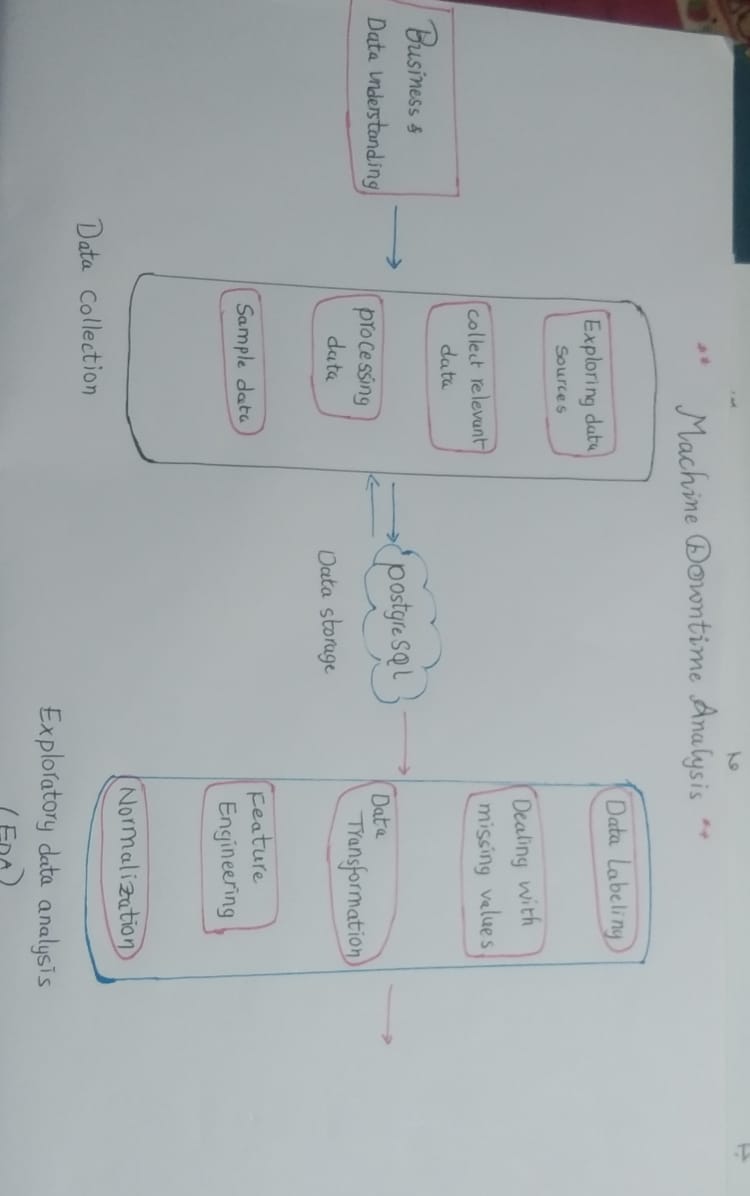 ** Machine Downtime Analysis **
Business &
Data Understanding
Exploring data
sources
collect relevant
data
processing
data
Sample data
Data Collection
postgreSQL
Data storage
Data Labeling
Dealing with
missing values
Data
Transformation
Feature
Engineering
Normalization
Exploratory data analysis
(EDA)